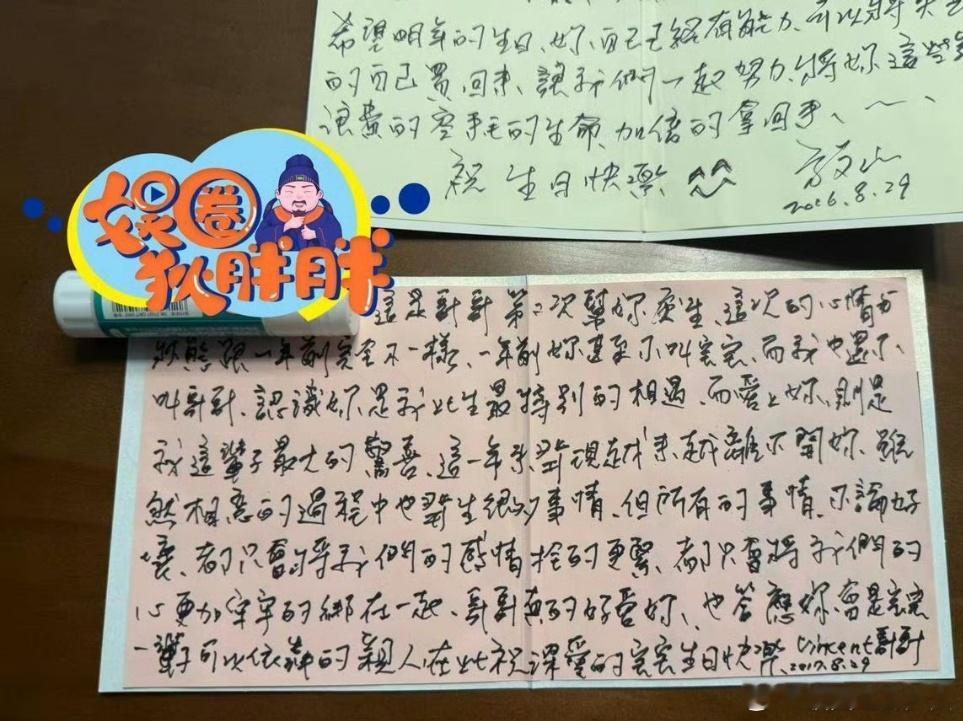 希望明年的生日、妳、自己已經有能力、可以將失去
的自己買回來、讓我們一起努力、將妳這些年
浪費的空白的生命、加倍的拿回來、
祝 生日快樂 ^^
2016.8.29
娱圈
狄胖胖
這是哥哥第二次幫妳慶生、這次的心情與
狀態跟一年前完全不一樣、一年前妳甚至不叫寶寶、而我也還不
叫哥哥、認識妳是我此生最特別的相遇、而愛上妳、則是
我這輩子最大的驚喜、這一年來發現越來越離不開妳、雖
然相戀的過程中也發生很多事情、但所有的事情、不論好
壞、都只會將我們的感情拴的更緊、都只會將我們的
心更加牢牢的綁在一起、哥哥真的好愛妳、也答應妳會是寶寶
一輩子可以依靠的親人在此祝深愛的寶寶生日快樂 Vincent哥哥
2017.8.29